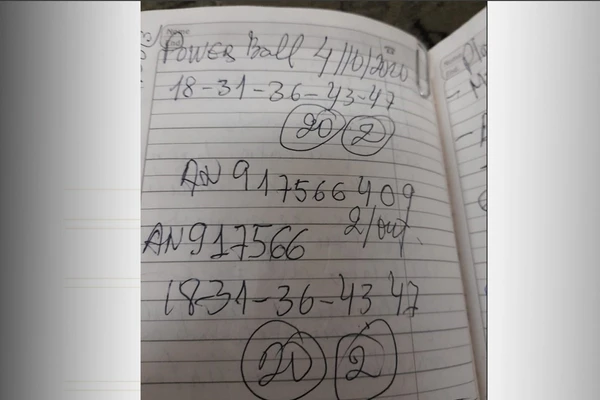 Power Ball 4/10/2020
18-31-36-43-47
20 2
AN917566409
2/out.
AN917566
18-31-36-43 47
20 2